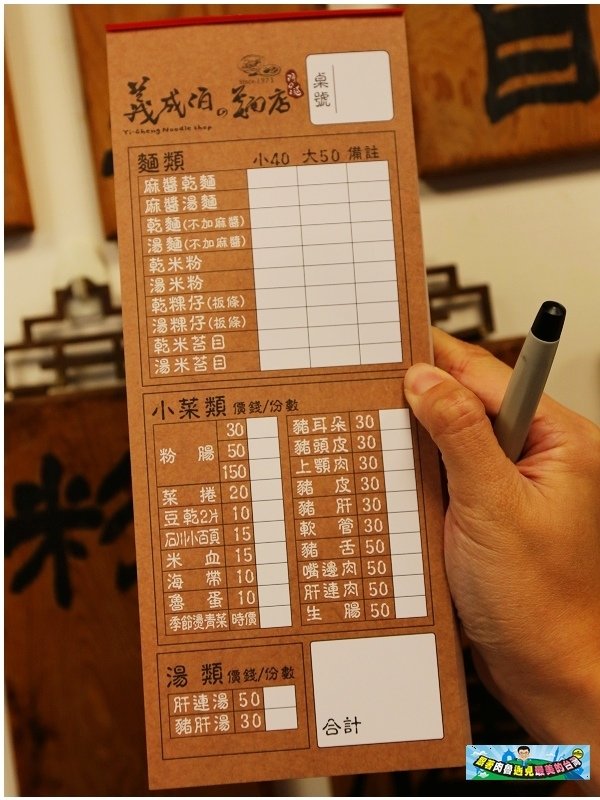 since.1971
義成伯の麵店
Yi-Cheng Noodle shop
桌號
麵類 小40 大50 備註
麻醬乾麵
麻醬湯麵
乾麵(不加麻醬)
湯麵(不加麻醬)
乾米粉
湯米粉
乾粿仔(板條)
湯粿仔(板條)
乾米苔目
湯米苔目
小菜類 價錢/份數
粉腸 30
50
150
菜捲 20
豆乾2片 10
石川小百頁 15
米血 15
海帶 10
魯蛋 10
季節燙青菜 時價
豬耳朵 30
豬頭皮 30
上顎肉 30
豬皮 30
豬肝 30
軟管 30
豬舌 50
嘴邊肉 50
肝連肉 50
生腸 50
湯類 價錢/份數
肝連湯 50
豬肝湯 30
合計
跟著肉魯遇見最美的台灣